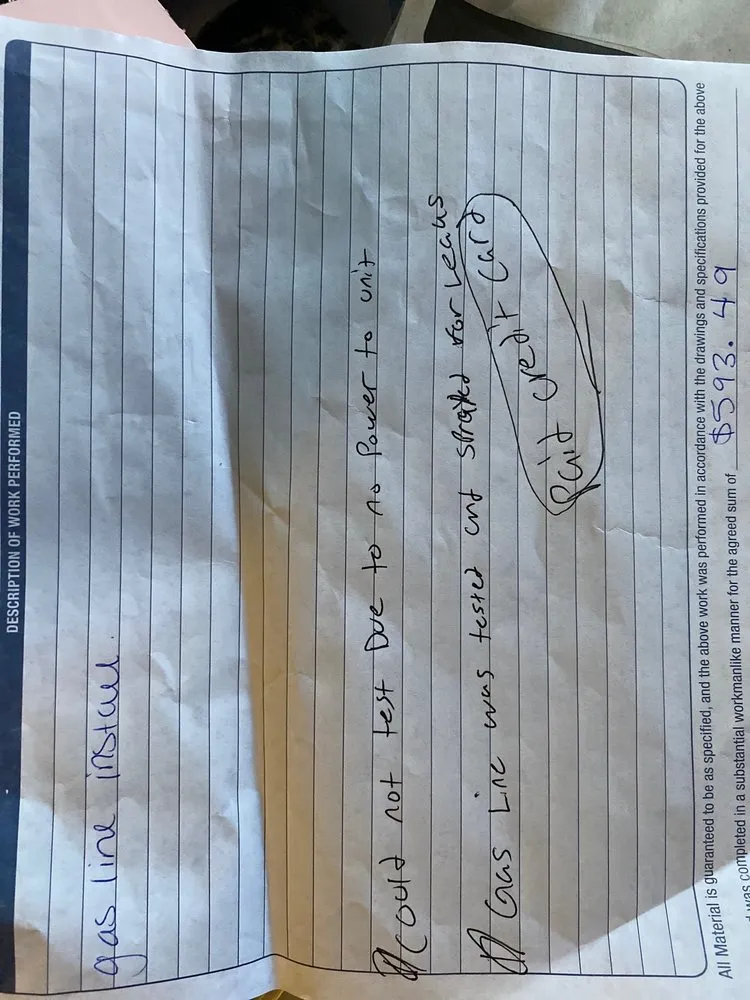 DESCRIPTION OF WORK PERFORMED
gas line install.
Could not test Due to no Power to unit
Gas Line was tested and sprayed for Leaks
Paid credit card
All Material is guaranteed to be as specified, and the above work was performed in accordance with the drawings and specifications provided for the above
was completed in a substantial workmanlike manner for the agreed sum of $593.49